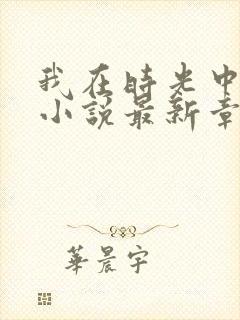 我在時光中
小說最新章
華晨宇